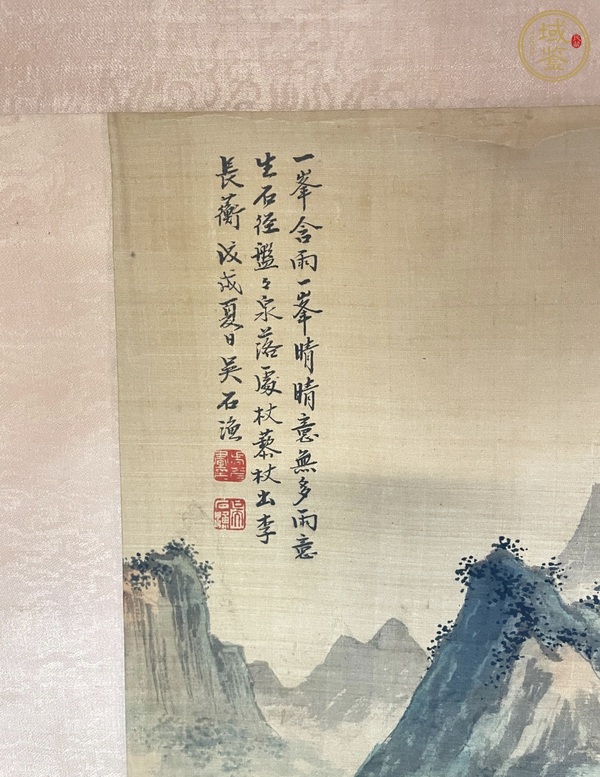 一峯含雨一峯晴晴意無多雨意
生石徑盤々泉落處杖藜杖出李
長蘅 戊戌夏日吳石漁
域鉴